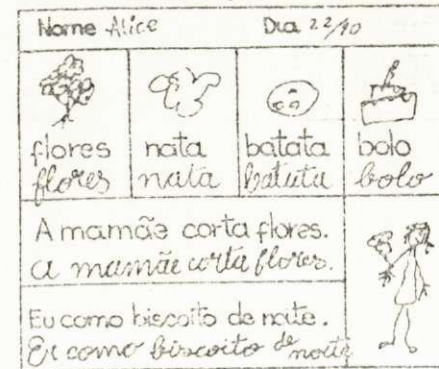 Nome Alice Dia 22/10
flores nata batata bolo
flores nata batata bolo
A mamãe corta flores.
a mamãe corta flores.
Eu como biscoito de noite.
Eu como biscoito de noite